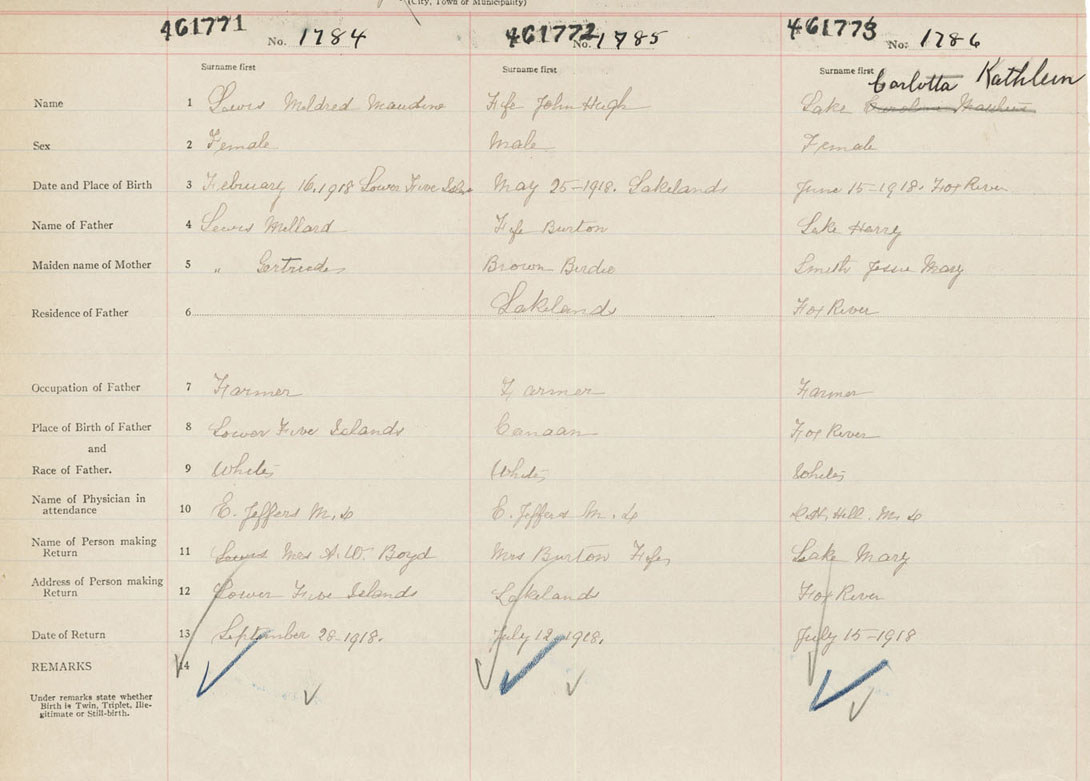 (City, Town or Municipality)
461771 No. 1784 461772 No. 1785 461773 No. 1786
Surname first Surname first Surname first Carlotta Kathleen
Name 1 Lewis Mildred Maudine Fife John Hugh Lake
Sex 2 Female Male Female
Date and Place of Birth 3 February 16, 1918 Lower Five May 25-1918. Lakelands June 15-1918. Fox River
Name of Father 4 Lewis Millard Fife Burton Lake Harry
Maiden name of Mother 5 " Gertrude Brown Birdie Smith Jessie Mary
Residence of Father 6 Lakelands Fox River
Occupation of Father 7 Farmer Farmer Farmer
Place of Birth of Father 8 Lower Five Islands Canaan Fox River
and
Race of Father. 9 White White White
Name of Physician in
attendance 10 E. Jeffers M.D E. Jeffers M.D Hill. M.D
Name of Person making
Return 11 Lewis Mrs A.W. Boyd Mrs Burton Fife Lake Mary
Address of Person making
Return 12 Lower Five Islands Lakelands Fox River
Date of Return 13 September 28-1918. July 12-1918. July 15-1918
REMARKS 14
Under remarks state whether
Birth is Twin, Triplet, Ille-
gitimate or Still-birth.